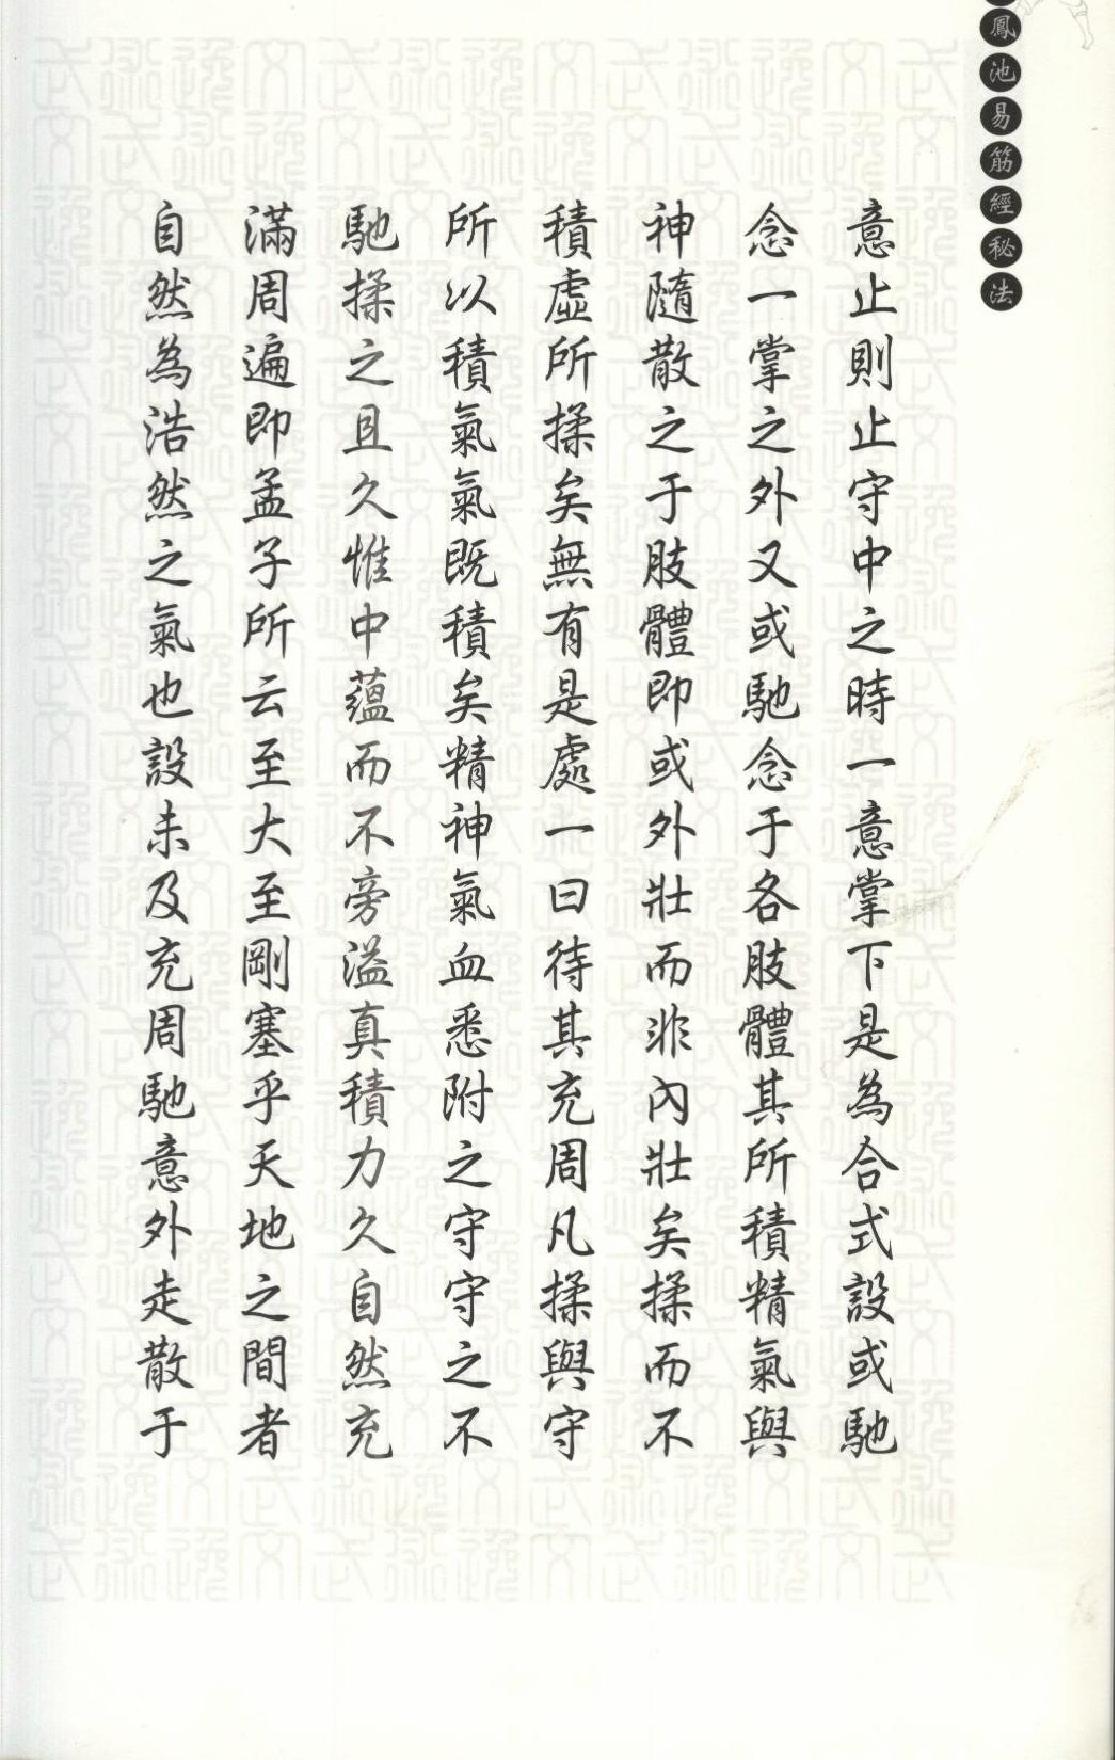 鳳池易筋經秘法
意止則止守中之時一意掌下是為合式設或馳
念一掌之外又或馳念于各肢體其所積精氣與
神隨散之于肢體即或外壯而非內壯矣揉而不
積虛所揉矣無有是處一曰待其充周凡揉與守
所以積氣氣既積矣精神氣血悉附之守守之不
馳揉之且久惟中蘊而不旁溢真積力久自然充
滿周遍即孟子所云至大至剛塞乎天地之間者
自然為浩然之氣也設未及充周馳意外走散于